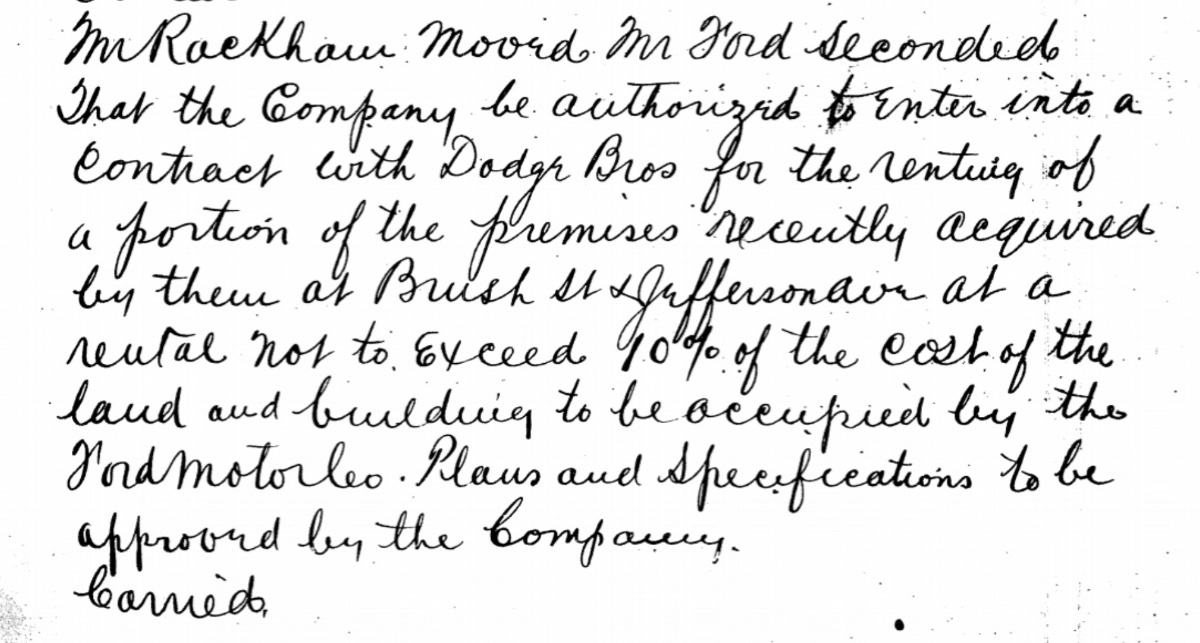 Mr Rackham Moved Mr Ford seconded
That the Company be authorized to Enter into a
Contract with Dodge Bros for the renting of
a portion of the premises recently acquired
by them at Brush St & Jefferson ave at a
rental not to Exceed 10% of the cost of the
land and building to be occupied by the
Ford Motor Co. Plans and Specifications to be
approved by the Company.
Carried.